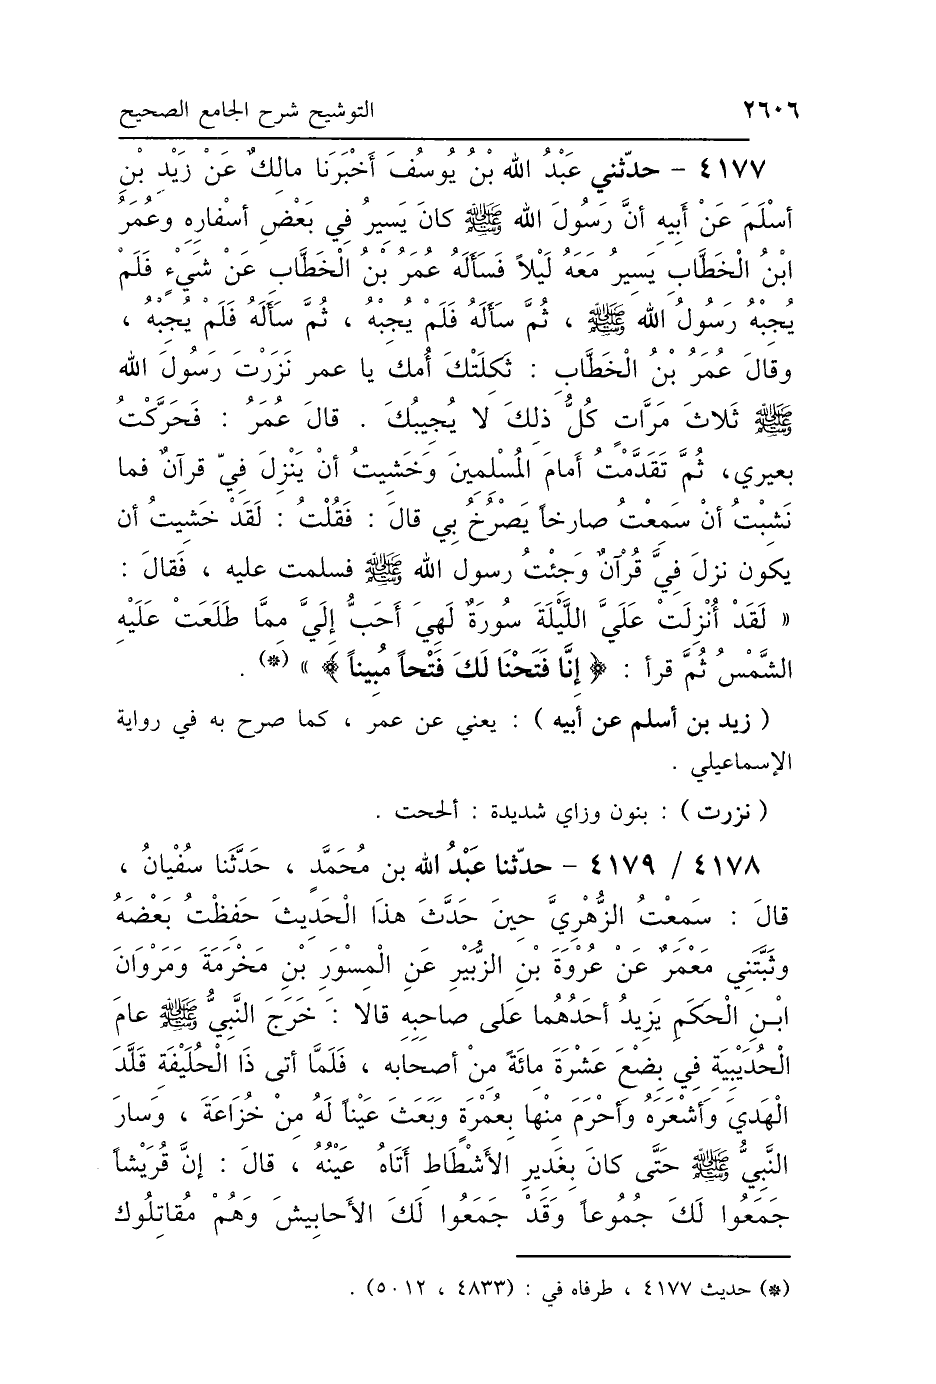 ٢٦٠٦ التوشيح شرح الجامع الصحيح
٤١٧٧ - حدّثني عَبْدُ الله بْنُ يُوسُفَ أَخْبَرَنا مالكٌ عَنْ زَيْدِ بْنِ
أسْلَمَ عَنْ أبيهِ أنَّ رَسُولَ الله ﷺ كانَ يَسِيرُ في بَعْضِ أسْفارِهِ وعُمَرُ
ابْنُ الْخَطَّابِ يَسِيرُ مَعَهُ لَيْلاً فَسَألَهُ عمَرُ بْنُ الْخَطَّابِ عَنْ شَيْءٍ فَلَم
يُجِبْهُ رَسُولُ الله ﷺ ، ثُمَّ سَألَهُ فَلَمْ يُجِبْهُ ، ثُمَّ سَألَهُ فَلَمْ يُجِبْهُ ،
وقالَ عُمَرُ بْنُ الْخَطَّابِ : ثَكِلَتْكَ أُمك يا عمر نَزَرْتَ رَسُولَ الله
ﷺ ثَلاثَ مَرَّاتٍ كلُّ ذلكَ لا يُجِيبُكَ . قالَ عُمَرُ : فَحَرَّكْتُ
بعيري، ثُمَّ تَقَدَّمْتُ أمامَ المُسْلمِينَ وَخَشِيتُ أنْ يَنْزِلَ فِيّ قرآنٌ فما
نَشِبْتُ أنْ سَمِعْتُ صارخاً يَصْرُخُ بِي قالَ : فَقُلْتُ : لَقَدْ خَشِيتُ أن
يكون نزلَ فِيَّ قُرْآنٌ وَجِئْتُ رسول الله ﷺ فسلمت عليه ، فَقالَ :
« لَقَدْ أُنْزِلَتْ عَلَيَّ اللَّيْلَةَ سُورَةٌ لَهِيَ أَحَبُّ إلَيَّ مِمَّا طَلَعَتْ عَلَيْهِ
الشَّمْسُ ثُمَّ قرأ : ﴿ إنَّا فَتَحْنَا لَكَ فَتْحاً مُبيناً ﴾ » (*) .
( زيد بن أسلم عن أبيه ) : يعني عن عمر ، كما صرح به في رواية
الإسماعيلي .
( نزرت ) : بنون وزاي شديدة : ألححت .
٤١٧٨ / ٤١٧٩ - حدّثنا عَبْدُ الله بن مُحَمَّدٍ ، حَدَّثَنا سفْيانُ ،
قالَ : سَمعْتُ الزُّهْرِيَّ حينَ حَدَّثَ هذَا الْحَديثَ حَفِظْتُ بَعْضَهُ
وثَبَّتَنِي مَعْمَرٌ عَنْ عُرْوَةَ بْنِ الزُّبَيْرِ عَنِ الْمِسْوَرِ بْنِ مَخْرَمَةَ وَمَرْوَانَ
ابْنِ الْحَكَمِ يَزِيدُ أحَدُهُما عَلَى صاحبِهِ قالا : خَرَجَ النَّبِيُّ ﷺ عامَ
الْحُدَيْبِيَةِ فِي بِضْعَ عَشْرَةَ مائَةً مِنْ أصحابه ، فَلَمَّا أتى ذَا الْحُلَيْفَةِ قَلَّدَ
الْهَدْيَ وَأشْعَرَهُ وأحْرَمَ مِنْها بِعُمْرَةٍ وَبَعَثَ عَيْناً لَهُ مِنْ خُزَاعَةَ ، وَسارَ
النَّبِيُّ ﷺ حَتَّى كانَ بِغَدِيرِ الأشْطَاطِ أتَاهُ عَيْنُهُ ، قالَ : إنَّ قُرَيْشاً
جَمَعُوا لَكَ جُمُوعاً وَقَدْ جَمَعُوا لَكَ الأحابِيشَ وَهُمْ مُقاتِلُوك
(*) حديث ٤١٧٧ ، طرفاه في : (٤٨٣٣ ، ٥٠١٢) .